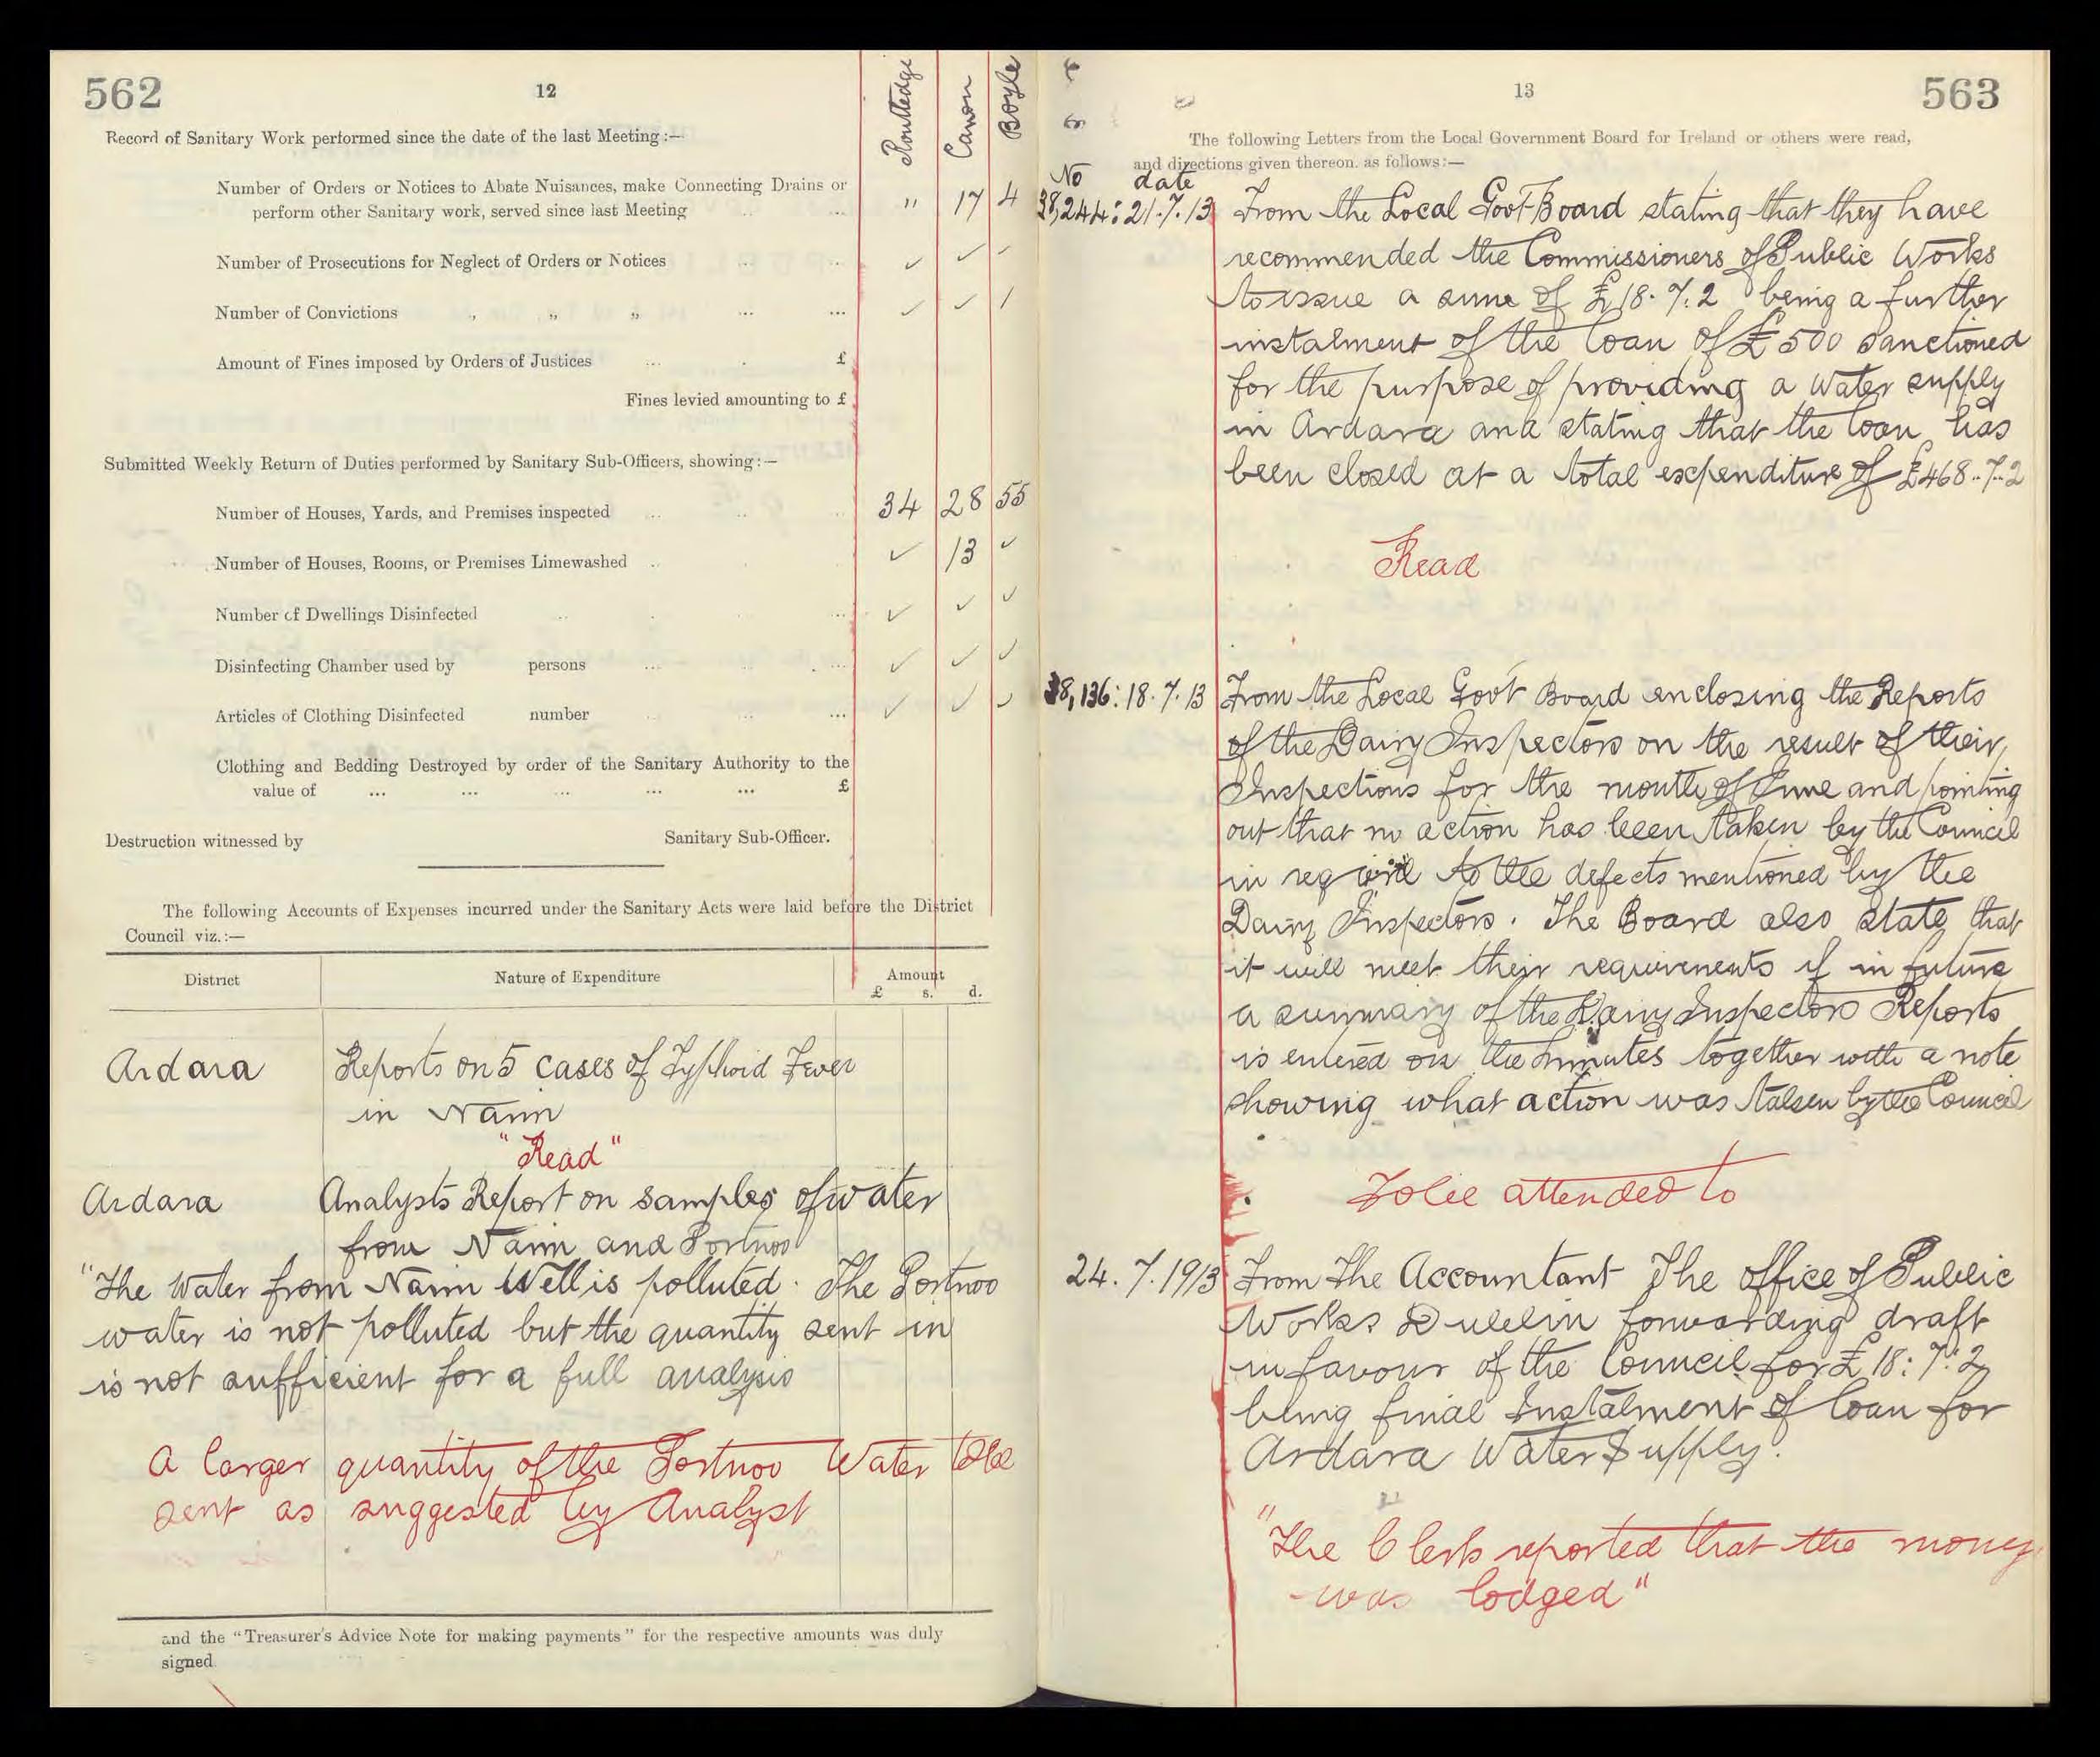 562
12
Routledge Canon Boyle
Record of Sanitary Work performed since the date of the last Meeting:—
Number of Orders or Notices to Abate Nuisances, make Connecting Drains or
perform other Sanitary work, served since last Meeting " 17 4
Number of Prosecutions for Neglect of Orders or Notices ✓ ✓ ✓
Number of Convictions „ „ „ ... ... ✓ ✓ /
Amount of Fines imposed by Orders of Justices ... £
Fines levied amounting to £
Submitted Weekly Return of Duties performed by Sanitary Sub-Officers, showing:—
Number of Houses, Yards, and Premises inspected 34 28 55
Number of Houses, Rooms, or Premises Limewashed ✓ 13 ✓
Number of Dwellings Disinfected ... ✓ ✓ ✓
Disinfecting Chamber used by persons ... ✓ ✓ ✓
Articles of Clothing Disinfected number ... ✓ ✓ ✓
Clothing and Bedding Destroyed by order of the Sanitary Authority to the
value of ... ... ... ... ... £
Destruction witnessed by Sanitary Sub-Officer.
The following Accounts of Expenses incurred under the Sanitary Acts were laid before the District
Council viz.:—
District Nature of Expenditure Amount
£ s. d.
Ardara Reports on 5 cases of Typhoid Fever
in Narin
"Read"
Ardara Analysts Report on samples of water
from Narin and Portnoo
"The Water from Narin Well is polluted. The Portnoo
water is not polluted but the quantity sent in
is not sufficient for a full analysis
A larger quantity of the Portnoo Water to be
sent as suggested by Analyst
and the "Treasurer's Advice Note for making payments" for the respective amounts was duly
signed
13
563
The following Letters from the Local Government Board for Ireland or others were read,
and directions given thereon. as follows:—
No date
38,244: 21.7.13 From the Local Govt Board stating that they have
recommended the Commissioners of Public Works
to issue a sum of £18.7.2 being a further
instalment of the loan of £500 sanctioned
for the purpose of providing a water supply
in Ardara and stating that the loan has
been closed at a total expenditure of £468..7..2
Read
38,136: 18.7.13 From the Local Govt Board enclosing the Reports
of the Dairy Inspectors on the result of their
Inspections for the month of June and pointing
out that no action has been taken by the Council
in regard to the defects mentioned by the
Dairy Inspectors. The Board also state that
it will meet their requirements if in future
a summary of the Dairy Inspectors Reports
is entered on the minutes together with a note
showing what action was taken by the Council
To be attended to
24.7.1913 From The Accountant The office of Public
Works Dublin forwarding draft
in favour of the Council for £18:7:2
being final Instalment of loan for
Ardara Water Supply.
"The Clerk reported that the money
was lodged"